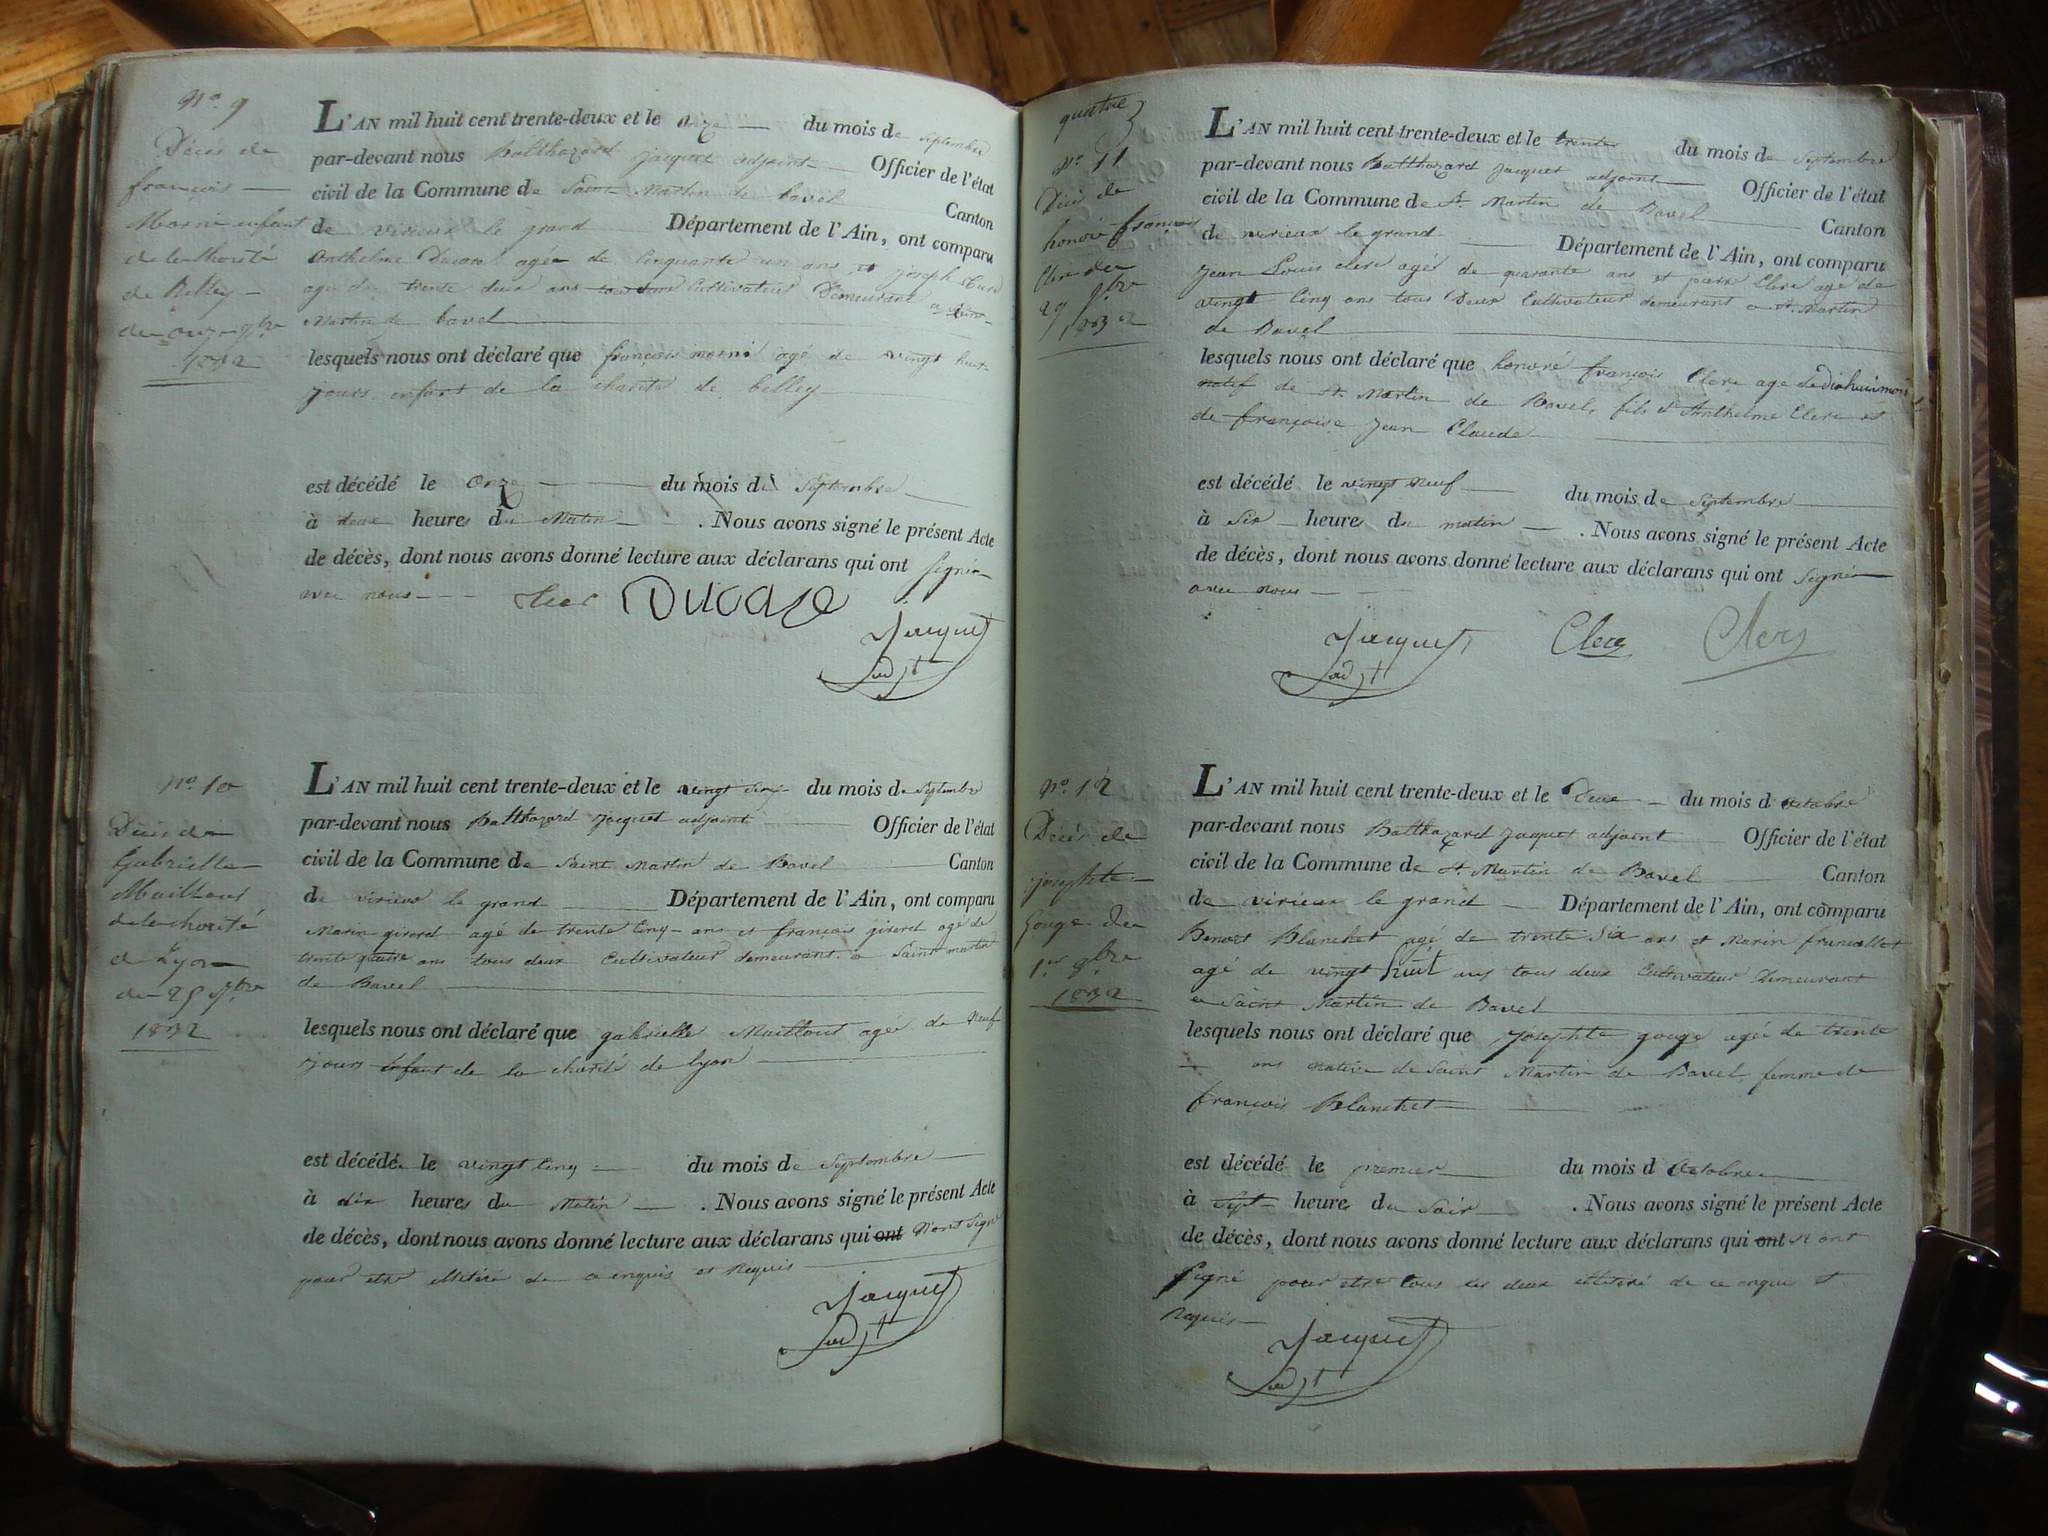 N.o 9
Décès de
françois
Marni enfant
de la charité
de Belley
du onze 7bre
1832
L'AN mil huit cent trente-deux et le onze du mois de septembre
par-devant nous Balthazard jacquet adjoint Officier de l'état
civil de la Commune de Saint Martin de bavel Canton
de virieux le grand Département de l'Ain, ont comparu
Anthelme agée de Cinquante un ans et joseph
agé de trente deux ans Cultivateur Demeurant a Saint
Martin de bavel
lesquels nous ont déclaré que françois marni agé de vingt huit
jours enfant de la charité de belley
est décédé le Onze du mois de Septembre
à deux heures du Matin . Nous avons signé le présent Acte
de décès, dont nous avons donné lecture aux déclarans qui ont signé
avec nous
Jacquet
adjt
N.o 10
Décès de
Gabrielle
Maillout
de la charité
de Lyon
du 25 7bre
1832
L'AN mil huit cent trente-deux et le vingt six du mois de Septembre
par-devant nous Balthazard jacquet adjoint Officier de l'état
civil de la Commune de Saint Martin de Bavel Canton
de virieux le grand Département de l'Ain, ont comparu
Marin girord agé de trente Cinq ans et françois girord agé de
trente quatre ans tous deux Cultivateur demeurant a Saint martin
de Bavel
lesquels nous ont déclaré que gabrielle Maillout agée de neuf
jours enfant de la charité de lyon
est décédée le vingt Cinq du mois de Septembre
à dix heures du Matin . Nous avons signé le présent Acte
de décès, dont nous avons donné lecture aux déclarans qui ont N'ont Signé
pour etre illitéré de ce enquis et Requis
Jacquet
adjt
quatre
N.o 11
Décès de
honoré françois
Clerc du
29 7bre
1832
L'AN mil huit cent trente-deux et le trente du mois de Septembre
par-devant nous Balthazard jacquet adjoint Officier de l'état
civil de la Commune de St. Martin de Bavel Canton
de virieux le grand Département de l'Ain, ont comparu
Jean Louis clerc agé de quarante ans et pierre Clerc agé de
vingt Cinq ans tous Deux Cultivateur demeurant a st. Martin
de Bavel
lesquels nous ont déclaré que honoré françois Clerc age de Dix huit mois
natif de St. Martin de Bavel, fils d'Anthelme Clerc et
de françoise Jean Claude
est décédé le vingt neuf du mois de Septembre
à Six heures du matin . Nous avons signé le présent Acte
de décès, dont nous avons donné lecture aux déclarans qui ont signé
avec nous
Jacquet Clerc Clerc
adjt
N.o 12
Décès de
josephte
Gouge du
1er 8bre
1832
L'AN mil huit cent trente-deux et le Deux du mois d'octobre
par-devant nous Balthazard jacquet adjoint Officier de l'état
civil de la Commune de St. Martin de Bavel Canton
de virieux le grand Département de l'Ain, ont comparu
Benoit Blanchet agé de trente Six ans et Marin francallet
agé de vingt huit ans tous deux Cultivateur Demeurant
a Saint Martin de Bavel
lesquels nous ont déclaré que josephte gouge agée de trente
ans native de Saint Martin de Bavel femme de
françois Blanchet
est décédé le premier du mois d'Octobre
à Sept heures du Soir . Nous avons signé le présent Acte
de décès, dont nous avons donné lecture aux déclarans qui ont N'ont
signé pour etre tous les deux illitéré de ce enquis et
Requis
Jacquet
adjt